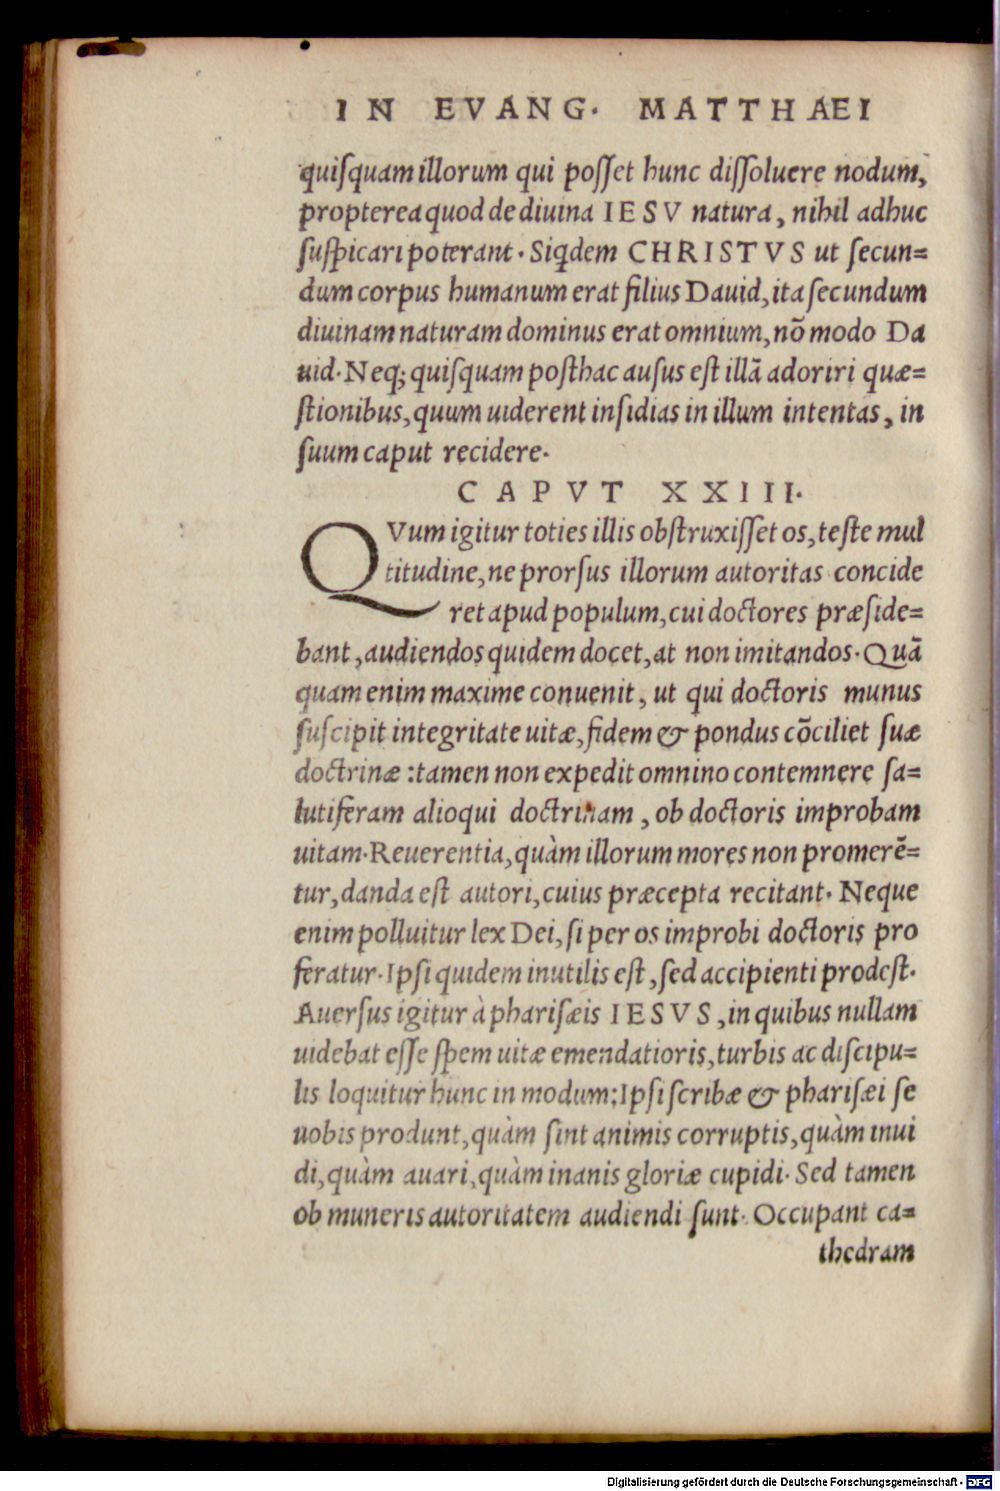 IN EVANG. MATTHAEI
quiſquam illorum qui poſſet hunc diſſoluere nodum,
propterea quod de diuina IESV natura, nihil adhuc
ſuſpicari poterant. Siqdem CHRISTVS ut ſecun=
dum corpus humanum erat filius Dauid, ita ſecundum
diuinam naturam dominus erat omnium, nõ modo Da
uid. Neq; quiſquam poſthac auſus eſt illã adoriri quæ=
ſtionibus, quum uiderent inſidias in illum intentas, in
ſuum caput recidere.
CAPVT XXIII.
QVum igitur toties illis obſtruxiſſet os, teſte mul
titudine, ne prorſus illorum autoritas concide
ret apud populum, cui doctores præſide=
bant, audiendos quidem docet, at non imitandos. Quã
quam enim maxime conuenit, ut qui doctoris munus
ſuſcipit integritate uitæ, fidem & pondus cõciliet ſuæ
doctrinæ: tamen non expedit omnino contemnere ſa=
lutiferam alioqui doctrinam, ob doctoris improbam
uitam. Reuerentia, quàm illorum mores non promerẽ=
tur, danda eſt autori, cuius præcepta recitant. Neque
enim polluitur lex Dei, ſi per os improbi doctoris pro
feratur. Ipſi quidem inutilis eſt, ſed accipienti prodeſt.
Auerſus igitur à phariſæis IESVS, in quibus nullam
uidebat eſſe ſpem uitæ emendatioris, turbis ac diſcipu=
lis loquitur hunc in modum: Ipſi ſcribæ & phariſæi ſe
uobis produnt, quàm ſint animis corruptis, quàm inui
di, quàm auari, quàm inanis gloriæ cupidi. Sed tamen
ob muneris autoritatem audiendi ſunt. Occupant ca=
thedram
Digitalisierung gefördert durch die Deutsche Forschungsgemeinschaft - DFG